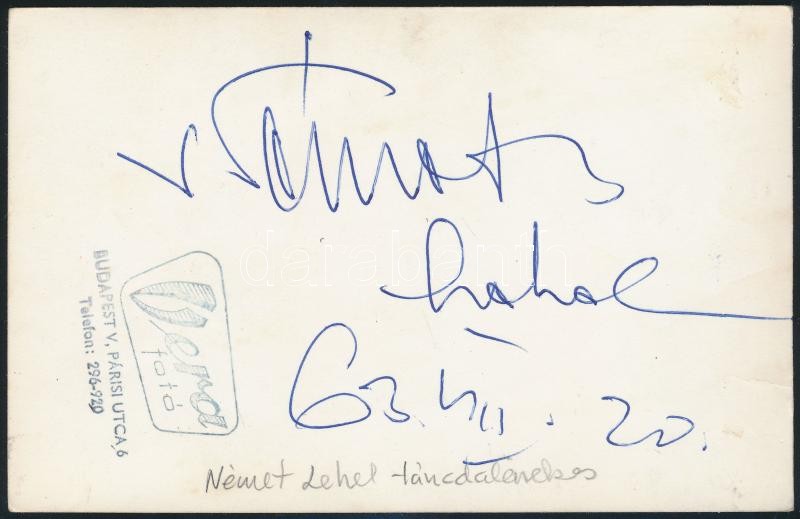 Németh
Lehel
63. VII. 20.
Vera
fotó
BUDAPEST V, PÁRISI UTCA, 6
Telefon: 296-920
Német Lehel táncdalénekes
darabanth